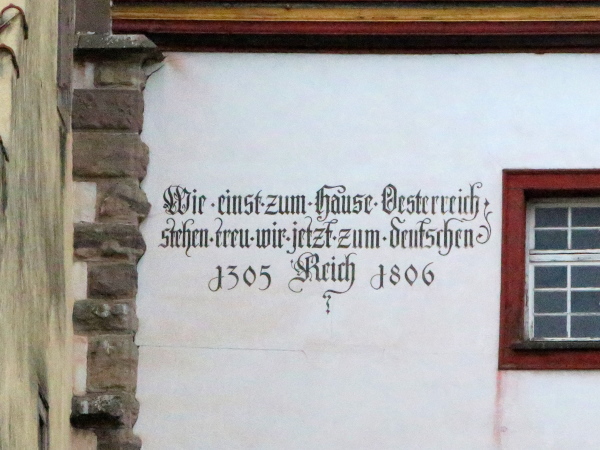 Wie·einst·zum·Hause·Oesterreich
stehen·treu·wir·jetzt·zum·deutschen
1305 Reich 1806